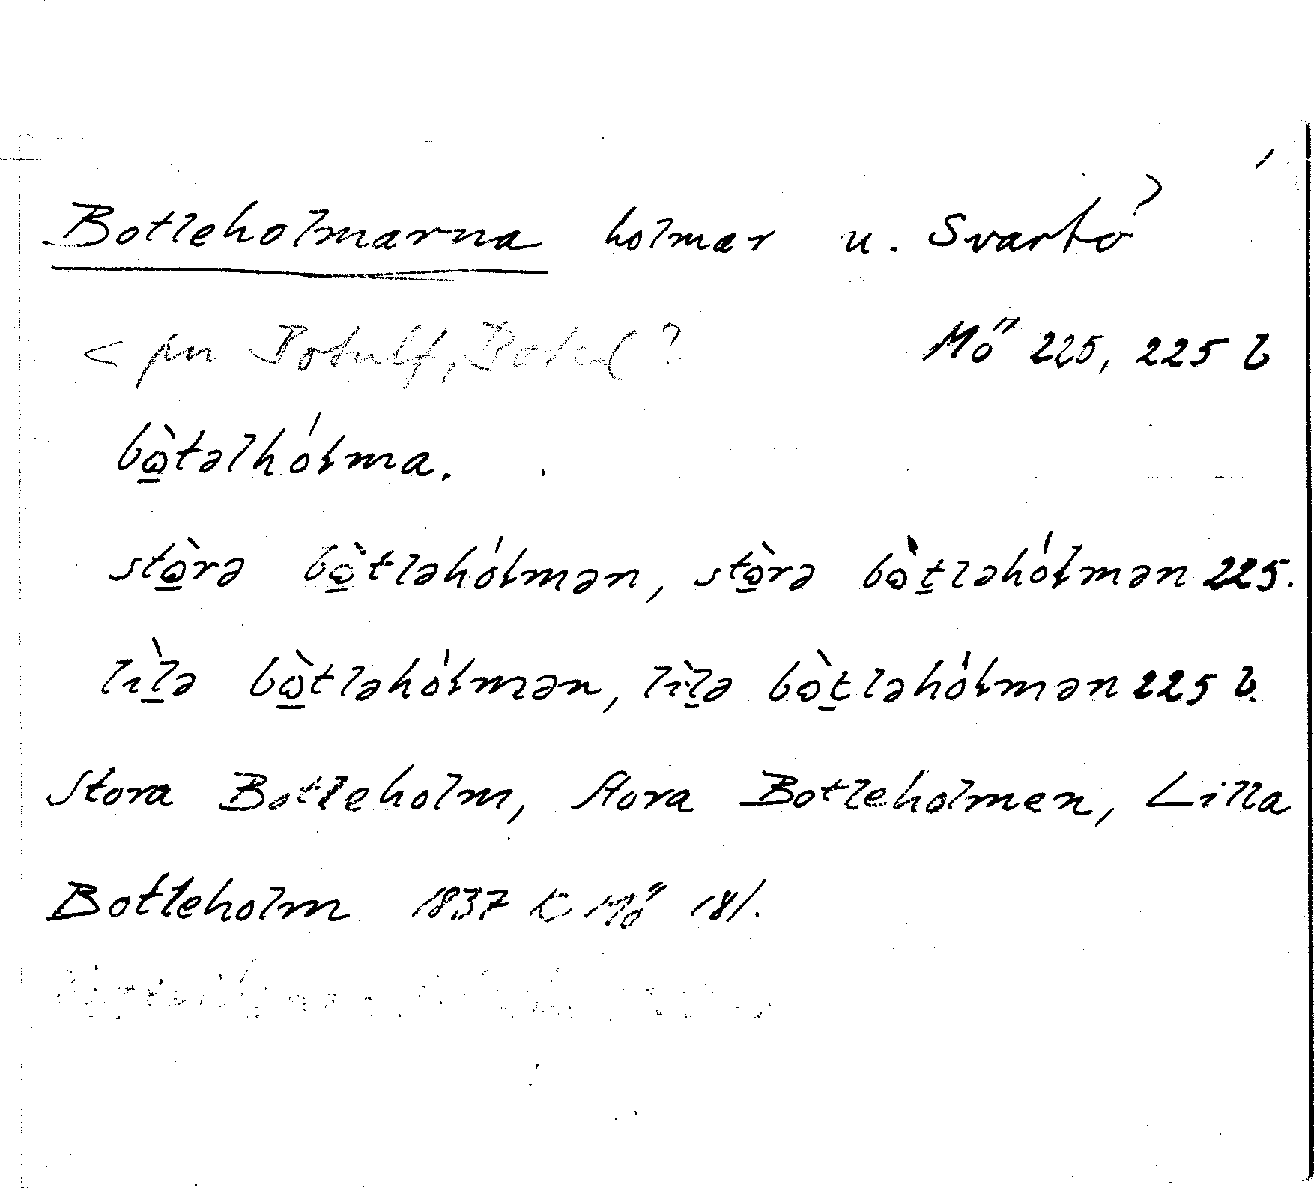 Botleholmarna holmar u. Svartö
< pn Botulf, Botel?
Mö 225, 225 b
bò̱təlhólma.
stò̱rə bò̱tləhólmən, stò̱rə bòṯləhólmən 225.
lìḻə bò̱tləhólmən, lìḻə bòṯləhólmən 225 b.
Stora Botleholm, Stora Botleholmen, Lilla
Botleholm 1837 K Mö 181.